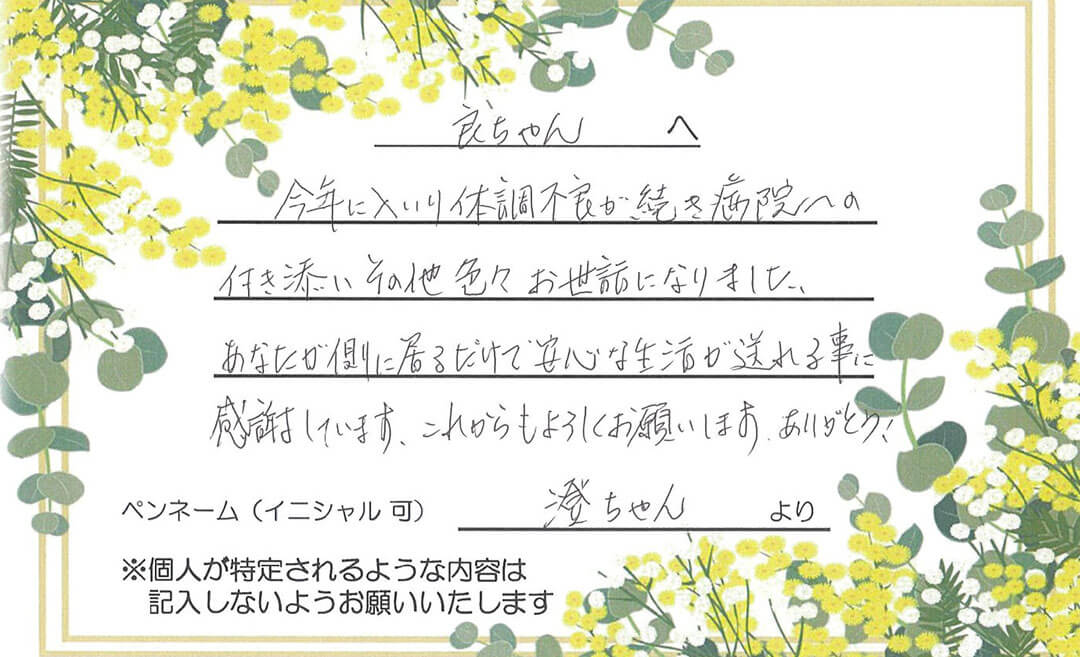 良ちゃん へ
今年に入いり体調不良が続き病院への
付き添いその他色々お世話になりました、
あなたが側に居るだけで安心な生活が送れる事に
感謝しています、これからもよろしくお願いします、ありがとう!
ペンネーム（イニシャル 可） 澄ちゃん より
※個人が特定されるような内容は
記入しないようお願いいたします